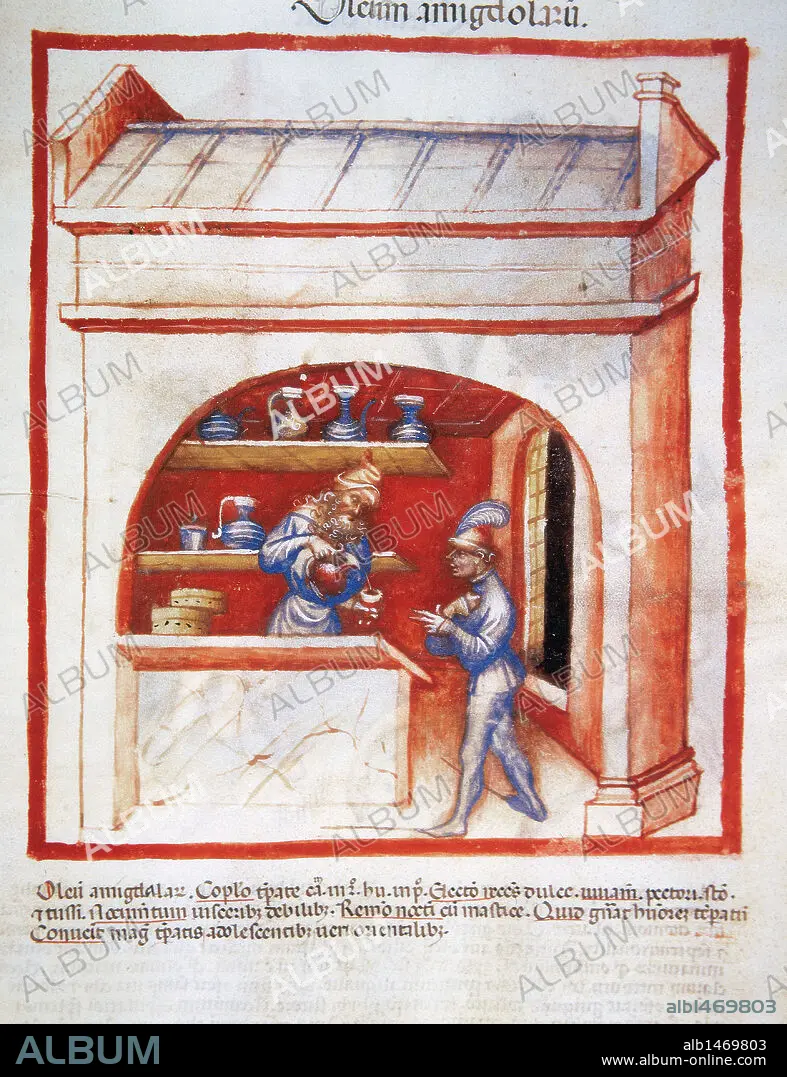 Oleum amigdolarū.
Oleū amigdalar. Coplo tꝑate cā. in 2. hu. in p̊. Electo reces dulce. iuuam̄. pectori. sto.
⁊ tussi. nocumtum uisceribꝫ debilibꝫ. Remo nocti cū mastice. Quid gn̄at huorez tꝑatū
Conueit mag tꝑatis adolescentibꝫ ueri orientalibꝫ.
ALBUM
alb1469803
ALBUM
alb1469803
www.album-online.com